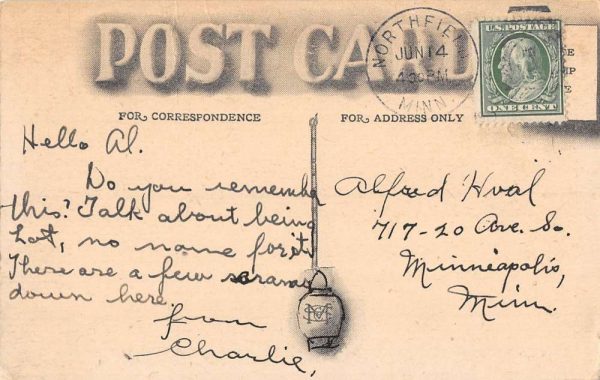 POST CARD
NORTHFIELD
JUN 14
4 30 PM
MINN.
U.S. POSTAGE
ONE CENT
FOR CORRESPONDENCE
FOR ADDRESS ONLY
Hello Al.
Do you remember
this? Talk about being
hot, no name for it.
There are a few
down here.
from
Charlie,
Alfred Hval
717-20 Ave. So.
Minneapolis,
Minn.